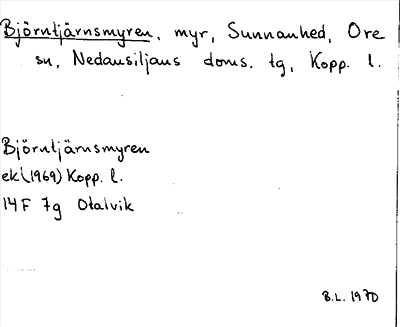 Björntjärnsmyren, myr, Sunnanhed, Ore
sn, Nedansiljans doms. tg, Kopp. l.
Björntjärnsmyren
ek (1969) Kopp. l.
14F 7g Otalvik
B.L. 1970